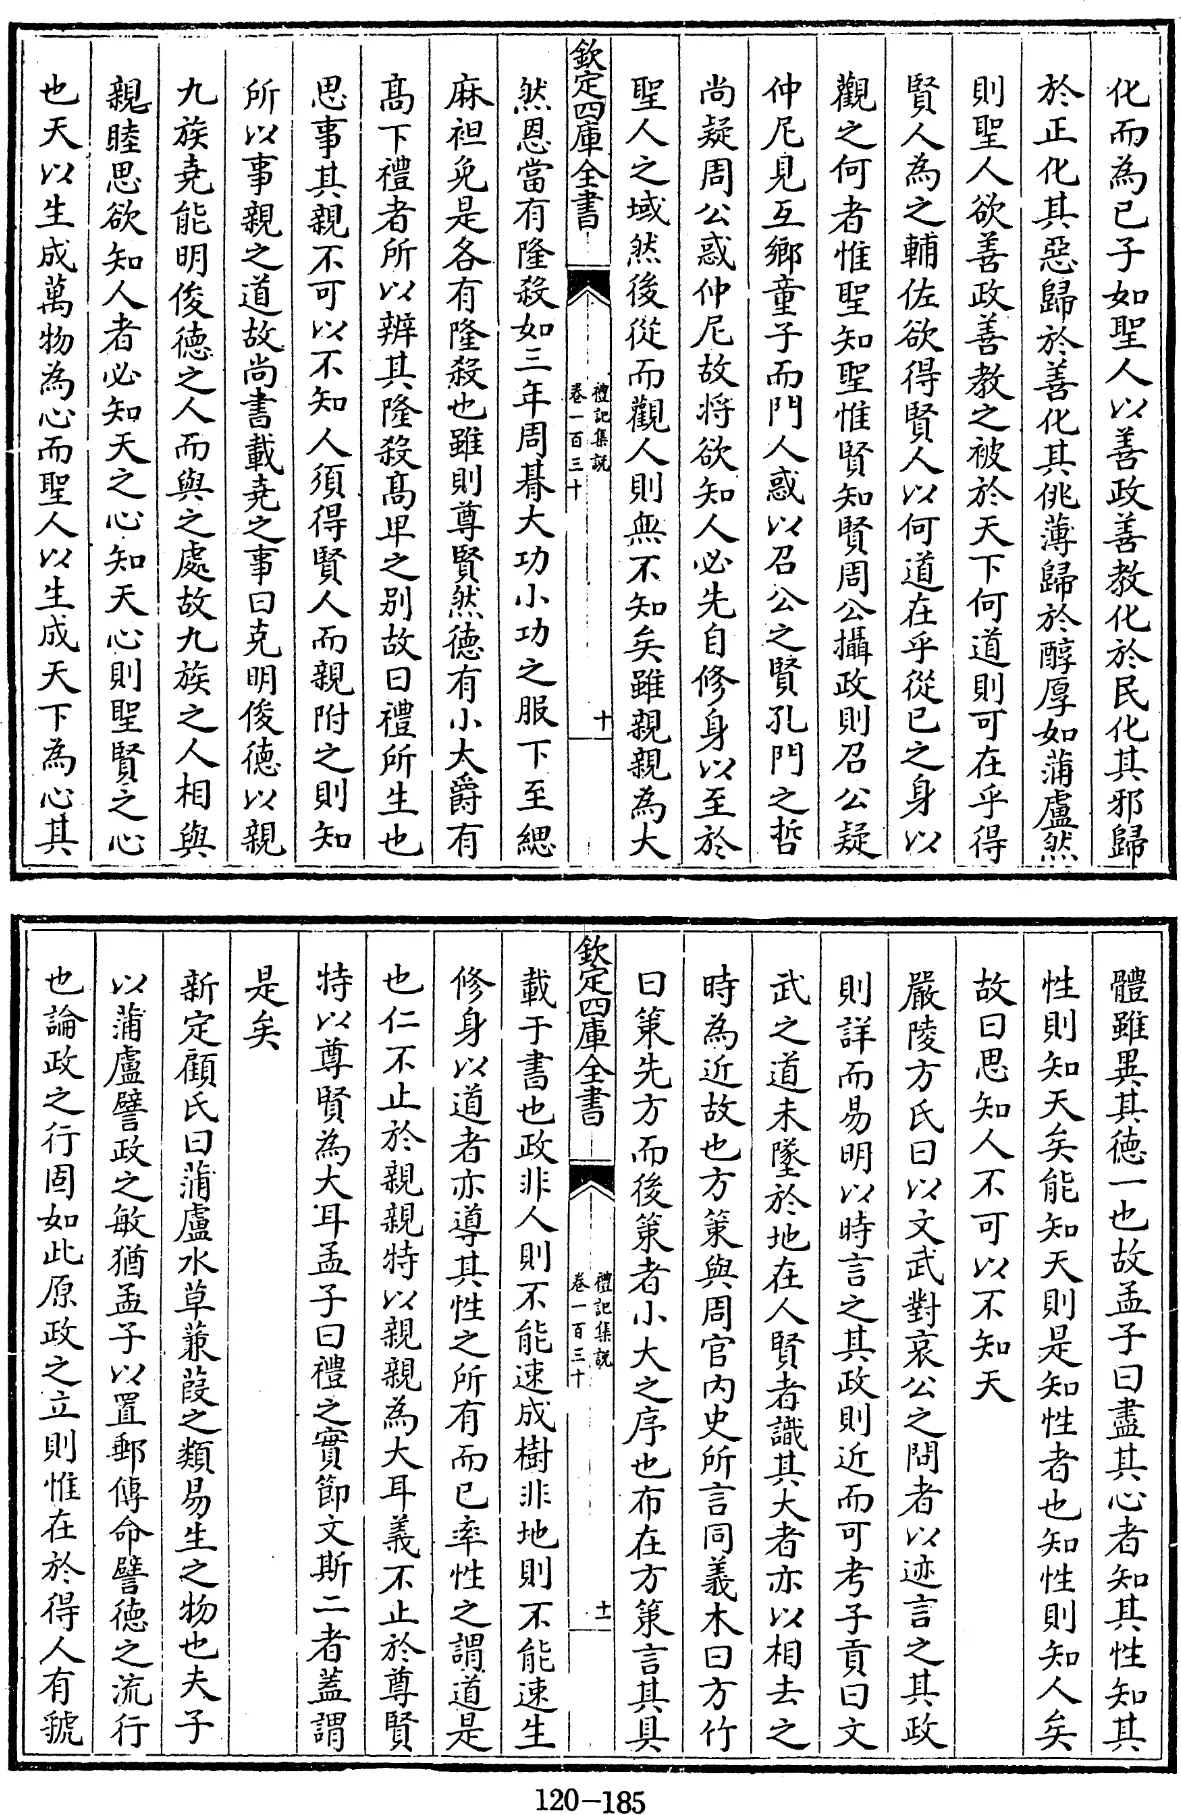 化而為已子如聖人以善政善教化於民化其邪歸
於正化其惡歸於善化其佻薄歸於醇厚如蒲盧然
則聖人欲善政善教之被於天下何道則可在乎得
賢人為之輔佐欲得賢人以何道在乎從已之身以
觀之何者惟聖知聖惟賢知賢周公攝政則召公疑
仲尼見互鄉童子而門人惑以召公之賢孔門之哲
尚疑周公惑仲尼故將欲知人必先自修身以至於
聖人之域然後從而觀人則無不知矣雖親親為大
欽定四庫全書
禮記集說
卷一百三十
十
然恩當有隆殺如三年周朞大功小功之服下至緦
麻袒免是各有隆殺也雖則尊賢然徳有小大爵有
髙下禮者所以辨其隆殺髙卑之别故曰禮所生也
思事其親不可以不知人須得賢人而親附之則知
所以事親之道故尚書載堯之事曰克明俊徳以親
九族堯能明俊徳之人而與之處故九族之人相與
親睦思欲知人者必知天之心知天心則聖賢之心
也天以生成萬物為心而聖人以生成天下為心其
體雖異其徳一也故孟子曰盡其心者知其性知其
性則知天矣能知天則是知性者也知性則知人矣
故曰思知人不可以不知天
嚴陵方氏曰以文武對哀公之問者以迹言之其政
則詳而易明以時言之其政則近而可考子貢曰文
武之道未墜於地在人賢者識其大者亦以相去之
時為近故也方策與周官内史所言同義木曰方竹
曰策先方而後策者小大之序也布在方策言其具
欽定四庫全書
禮記集說
卷一百三十
十一
載于書也政非人則不能速成樹非地則不能速生
修身以道者亦導其性之所有而已率性之謂道是
也仁不止於親親特以親親為大耳義不止於尊賢
特以尊賢為大耳孟子曰禮之實節文斯二者蓋謂
是矣
新定顧氏曰蒲盧水草蒹葭之類易生之物也夫子
以蒲盧譬政之敏猶孟子以置郵傳命譬徳之流行
也論政之行固如此原政之立則惟在於得人有虢
120-185